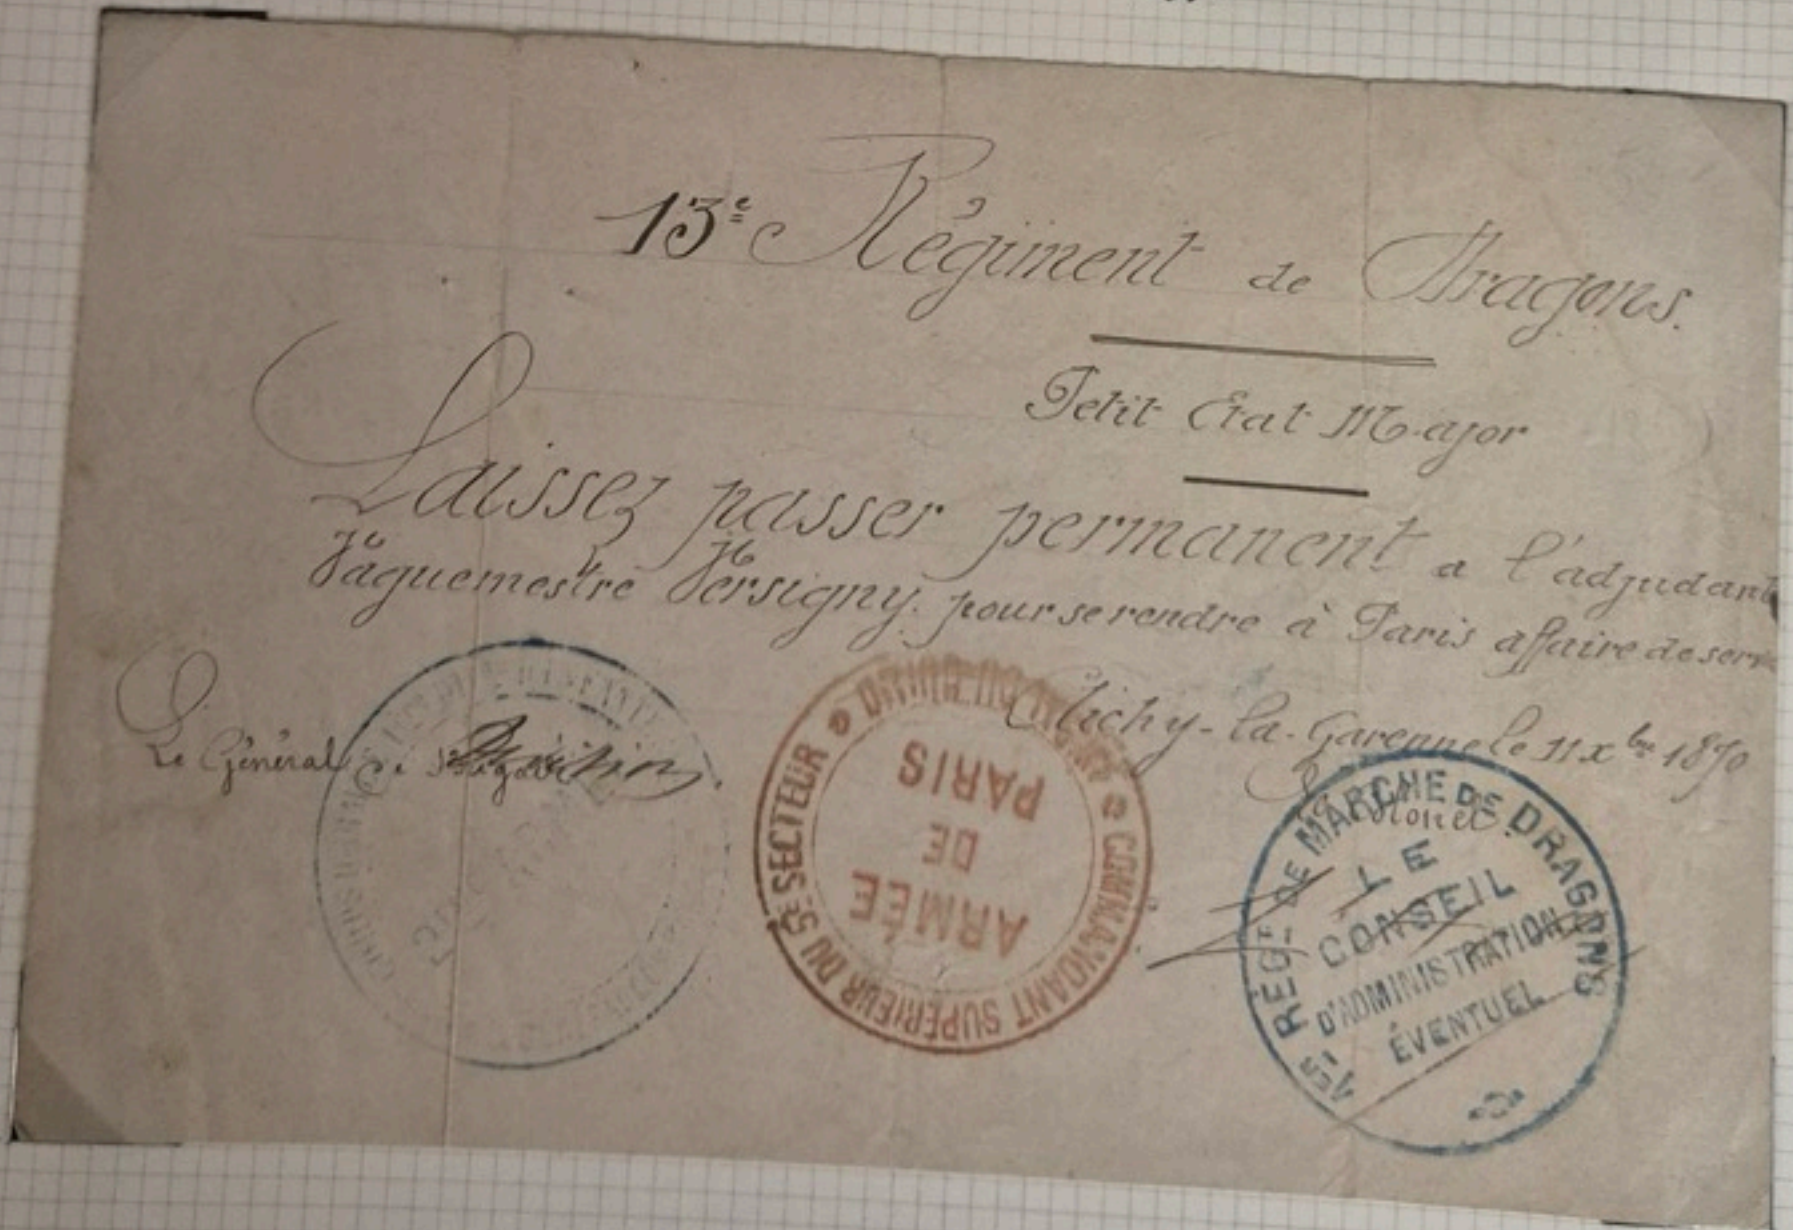 13e Régiment de Dragons.
Petit Etat Major
Laissez passer permanent a l'adjudant
Vaguemestre Versigny. pour se rendre à Paris affaire de serv
Clichy-la-Garenne le 11 xbre 1870
Le Général
Le Colonel
COMMANDANT SUPÉRIEUR DU 5E SECTEUR
ARMÉE
DE
PARIS
1ER RÉGT DE MARCHE DE DRAGONS
LE
CONSEIL
D'ADMINISTRATION
ÉVENTUEL